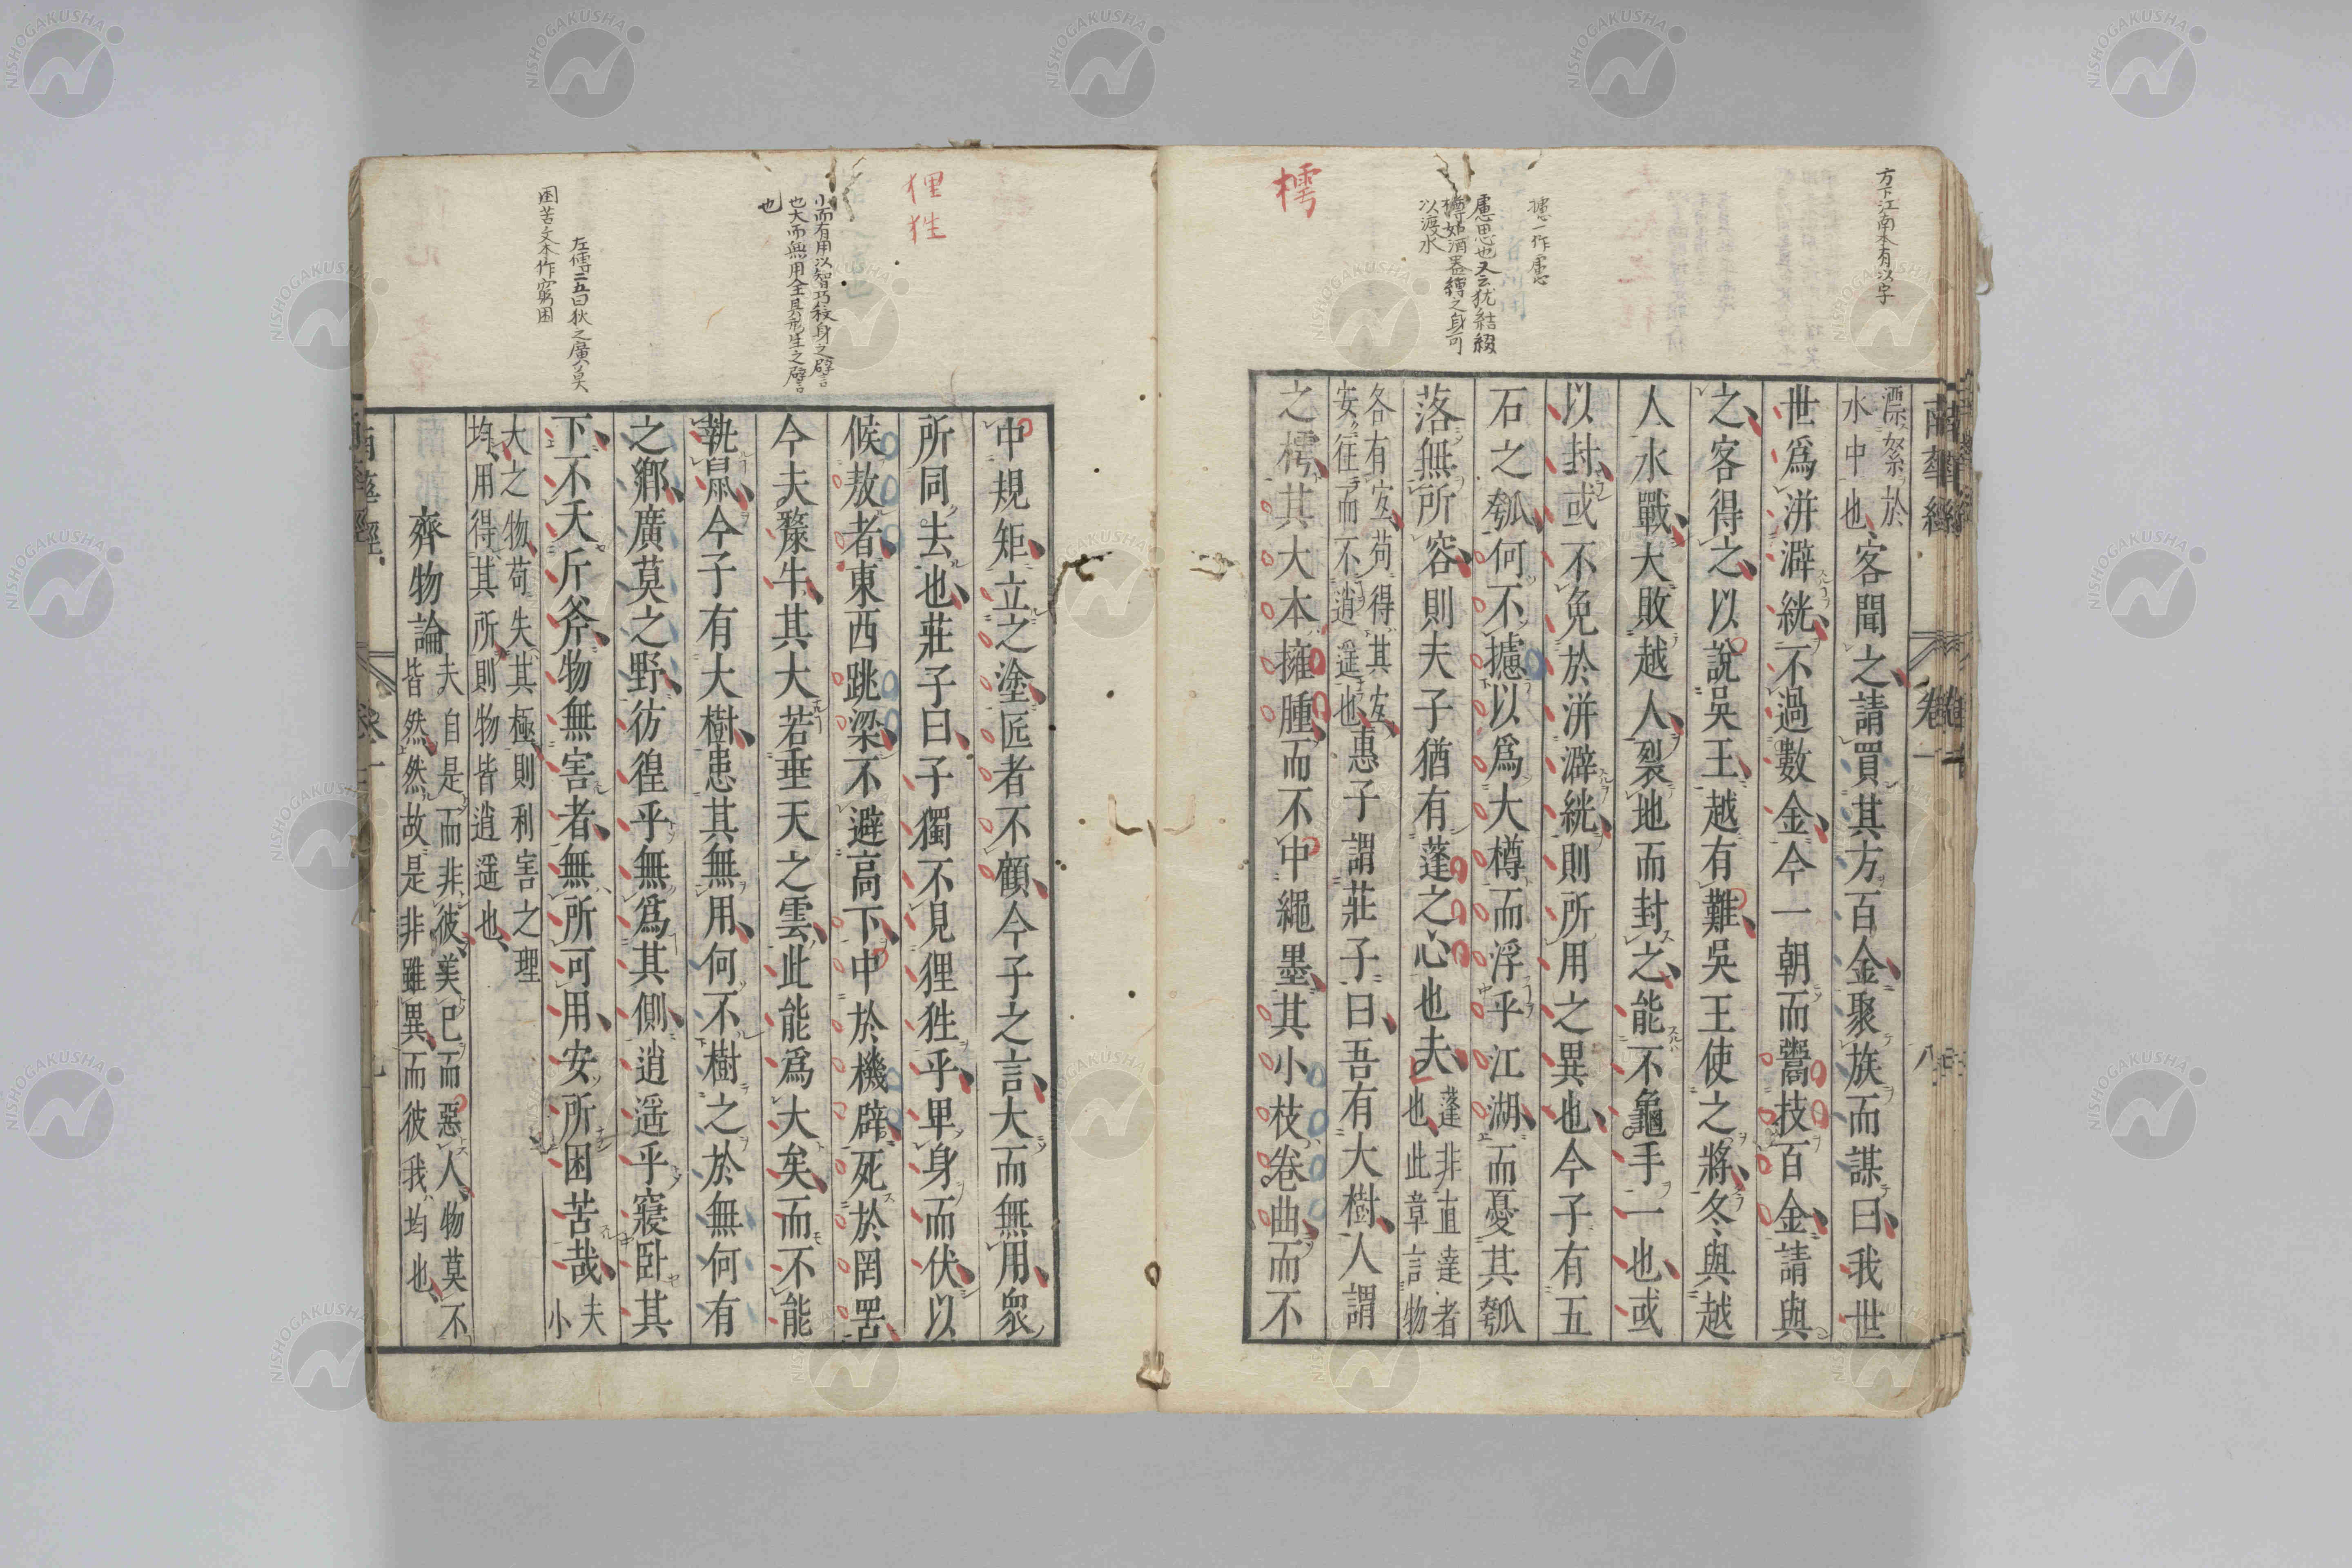 方下江南本有以字
攄一作慮
慮思也又云猶結綴
樽如酒器縛之身可
以渡水
樗
漂絮於
水中也客聞之請買其方百金聚族而謀曰我世
世爲洴澼絖不過數金今一朝而鬻技百金請與
之客得之以說吳王越有難吳王使之將冬與越
人水戰大敗越人裂地而封之能不龜手一也或
以封或不免於洴澼絖則所用之異也今子有五
石之瓠何不攄以爲大樽而浮乎江湖而憂其瓠
落無所容則夫子猶有蓬之心也夫蓬非直達者
也此章言物
各有宜苟得其宜
安往而不逍遥也惠子謂莊子曰吾有大樹人謂
之樗其大本擁腫而不中繩墨其小枝卷曲而不
南華經
卷一
八
狸
狌
小而有用以智巧殺身之譬
也大而無用全其形生之譬
也
左傳二五曰狄之廣莫
困苦文本作窮困
中規矩立之塗匠者不顧今子之言大而無用衆
所同去也莊子曰子獨不見狸狌乎卑身而伏以
候敖者東西跳梁不避高下中於機辟死於罔罟
今夫斄牛其大若垂天之雲此能爲大矣而不能
執鼠今子有大樹患其無用何不樹之於無何有
之鄉廣莫之野彷徨乎無爲其側逍遥乎寢卧其
下不夭斤斧物無害者無所可用安所困苦哉夫
小
大之物苟失其極則利害之理
均用得其所則物皆逍遥也
齊物論
夫自是而非彼美已而惡人物莫不
皆然然故是非雖異而彼我均也
NISHOGAKUSHA